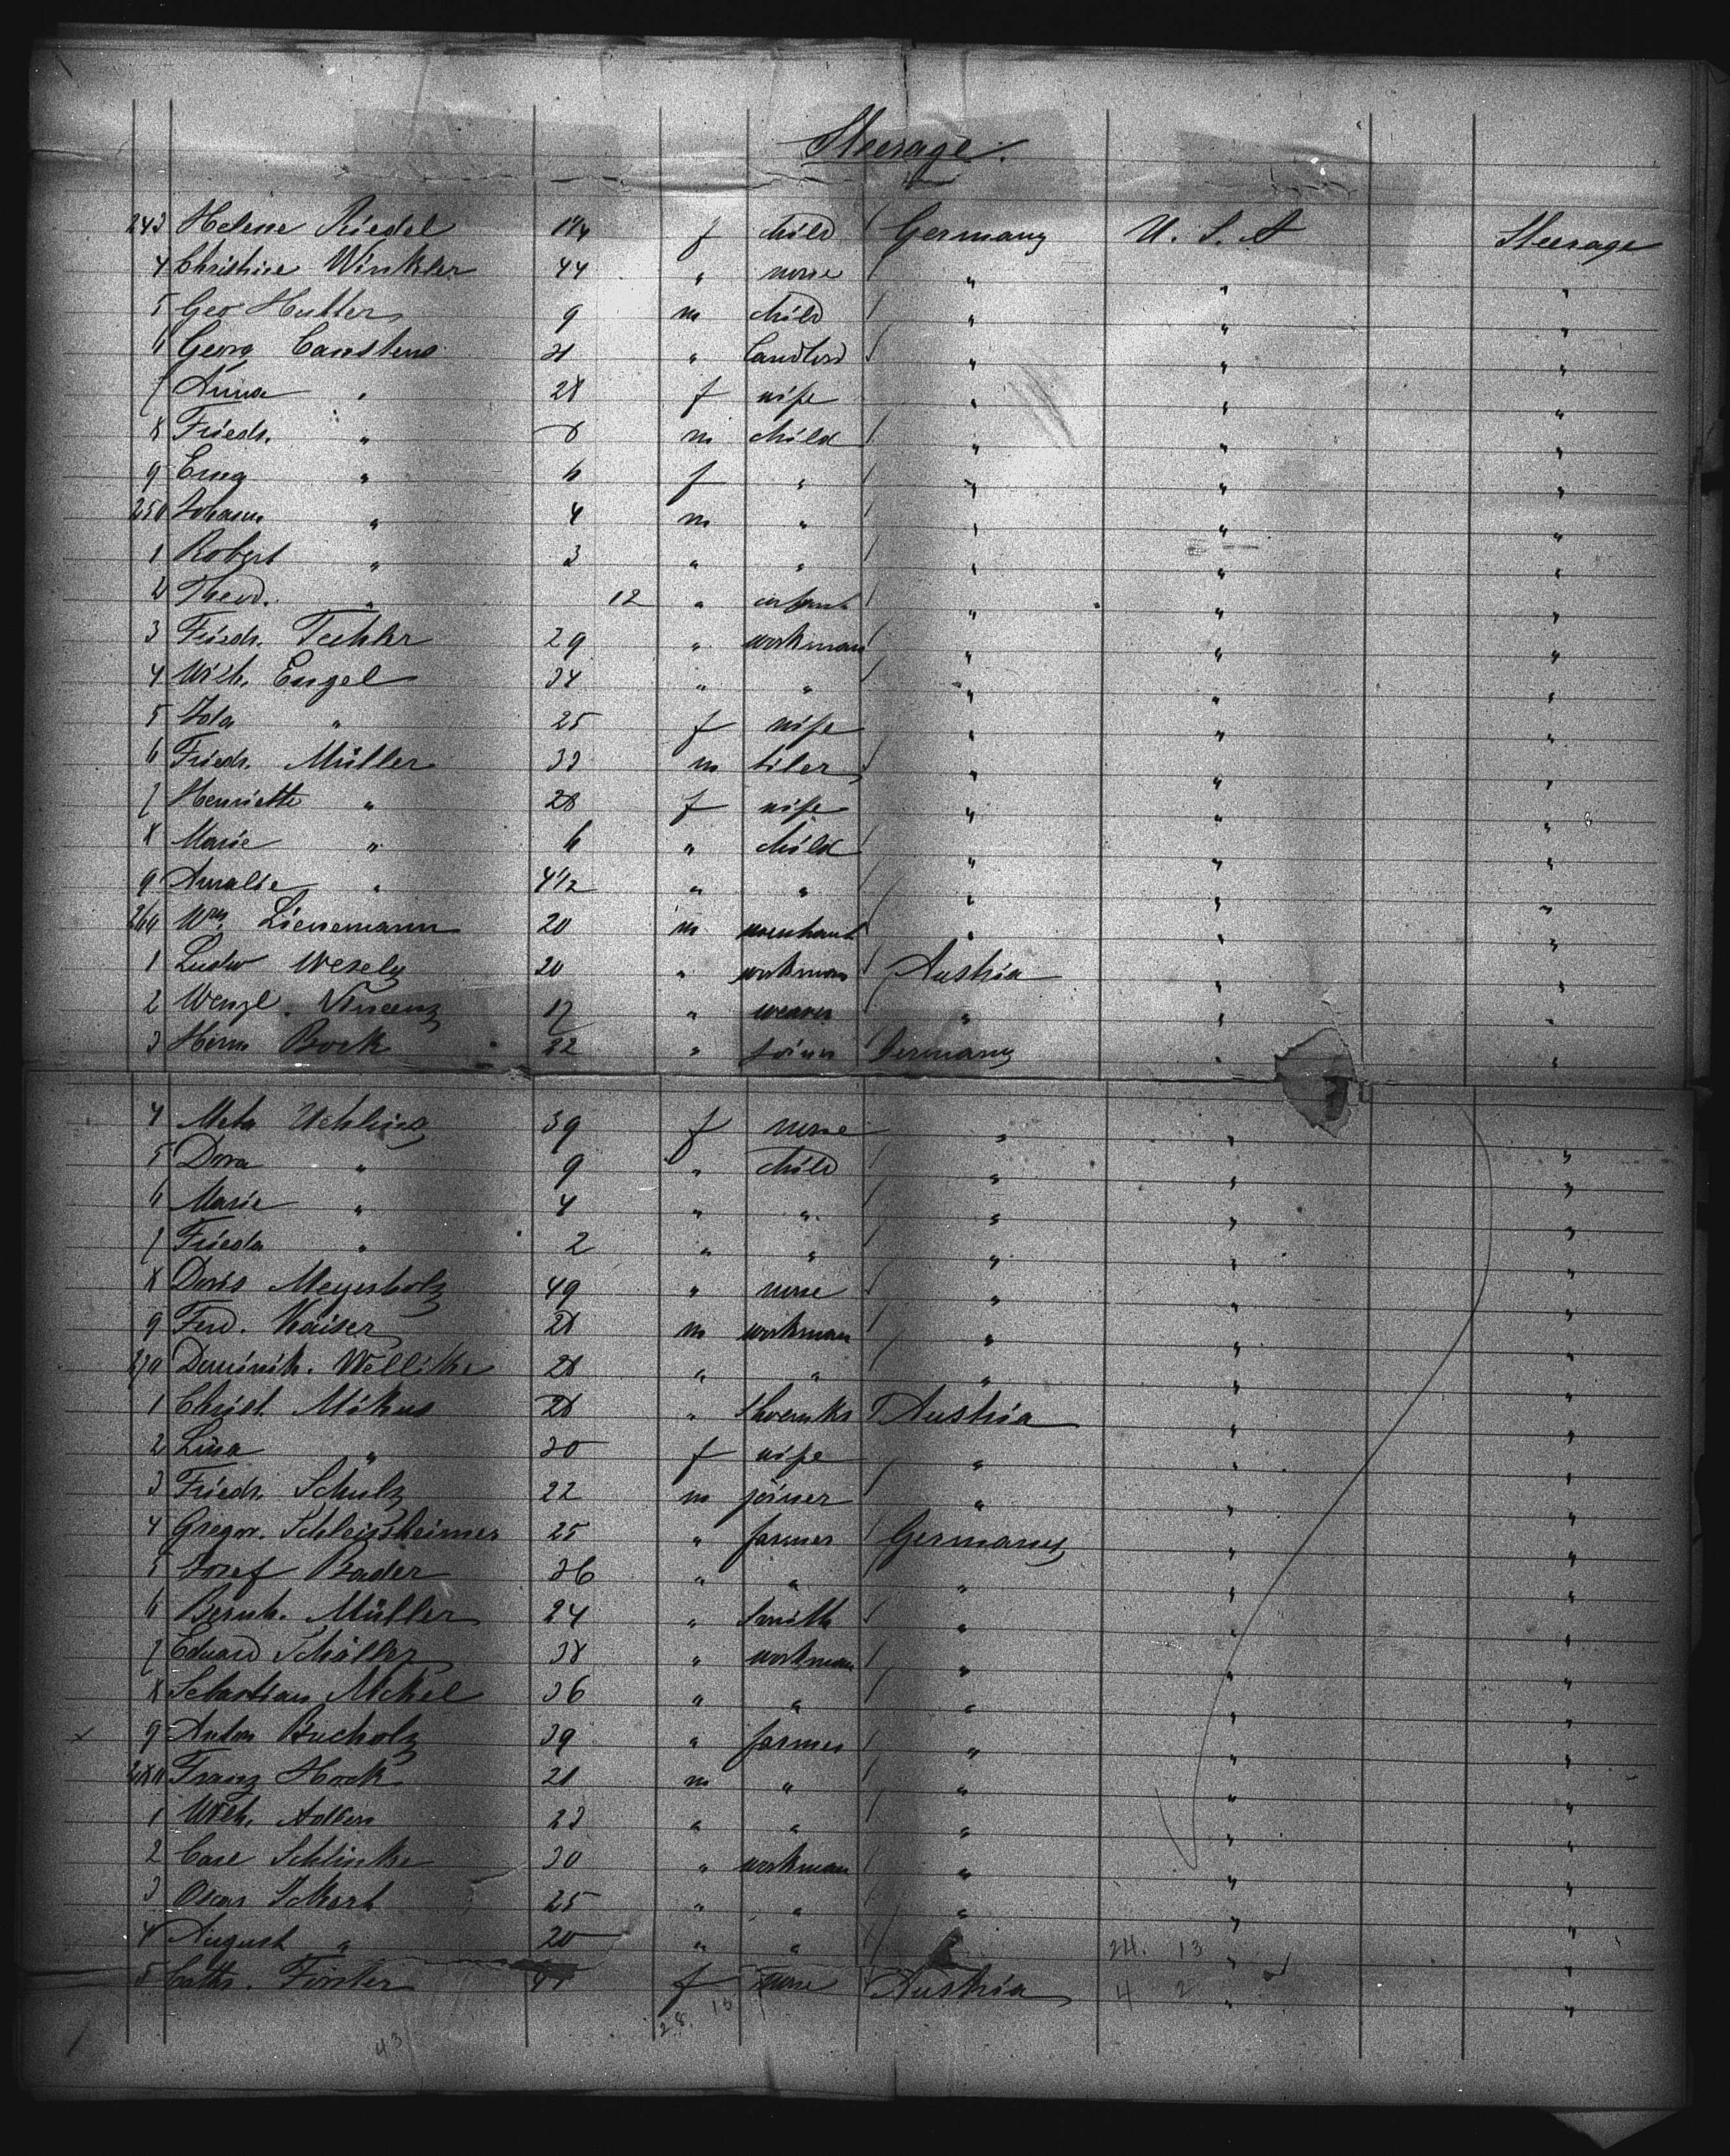 Steerage.
243 Helene Riedel 1 1/4 f child Germany U. S. A Steerage
4 Christine Winkler 44 " none " " "
5 Geo Hutter 9 m child " " "
6 Georg Carstens " Landlord " " "
7 Anna " 28 f wife " " "
8 Friedr. " 8 m child " " "
9 Erna " 6 f " " " "
250 Johann " 4 m " " " "
1 Robert " 3 " " " " "
2 Theod. " 12 " infant " " "
3 Friedr. 29 " workman " " "
4 Wilh. Engel 34 " " " " "
5 Ida " 25 f wife " " "
6 Friedr. Müller 33 m tiler " " "
7 Henriette " 28 f wife " " "
8 Marie " 6 " child " " "
9 Amalie " 4 1/2 " " " " "
260 Wm. Lienemann 20 m merchant " " "
1 Ludw Wesely 20 " workman Austria " "
2 Wenzl. Vincenz 17 " weaver " " "
3 Herm Bock 22 " joiner Germany " "
4 Meta 39 f none " " "
5 Dora " 9 " child " " "
6 Marie " 4 " " " " "
7 Frieda " 2 " " " " "
8 Doris Meyerholz 49 " none " " "
9 Ferd. Kaiser 28 m workman " " "
270 Dominik. 28 " " " " "
1 Christ. Mikus 28 " Austria " "
2 Lina " 30 f wife " " "
3 Friedr. Schulz 22 m joiner " " "
4 Gregor. Schleissheimer 25 " farmer Germany " "
5 Josef Bader 36 " " " " "
6 Bernh. Müller 24 " Smith " " "
7 Eduard Schäller 38 " workman " " "
8 Sebastian Nickel 36 " " " " "
x 9 Anton Bucholz 39 " farmer " " "
280 Franz Hock 21 m " " " "
1 Wilh. 23 " " " " "
2 Carl Schlinke 30 " workman " " "
3 Oscar 25 " " " " "
4 August " 20 " " " 24. 13 " "
5 Cath. Förster f none Austria 4 2 " "
28. 15
43